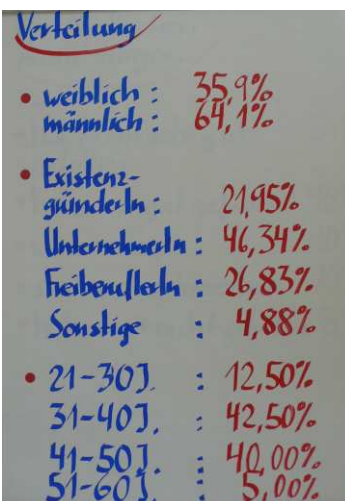 Verteilung
• weiblich : 35,9%
männlich : 64,1%
• Existenz-
gründerIn : 21,95%
UnternehmerIn : 46,34%
FreiberuflerIn : 26,83%
Sonstige : 4,88%
• 21-30J. : 12,50%
31-40J. : 42,50%
41-50J. : 40,00%
51-60J. : 5,00%